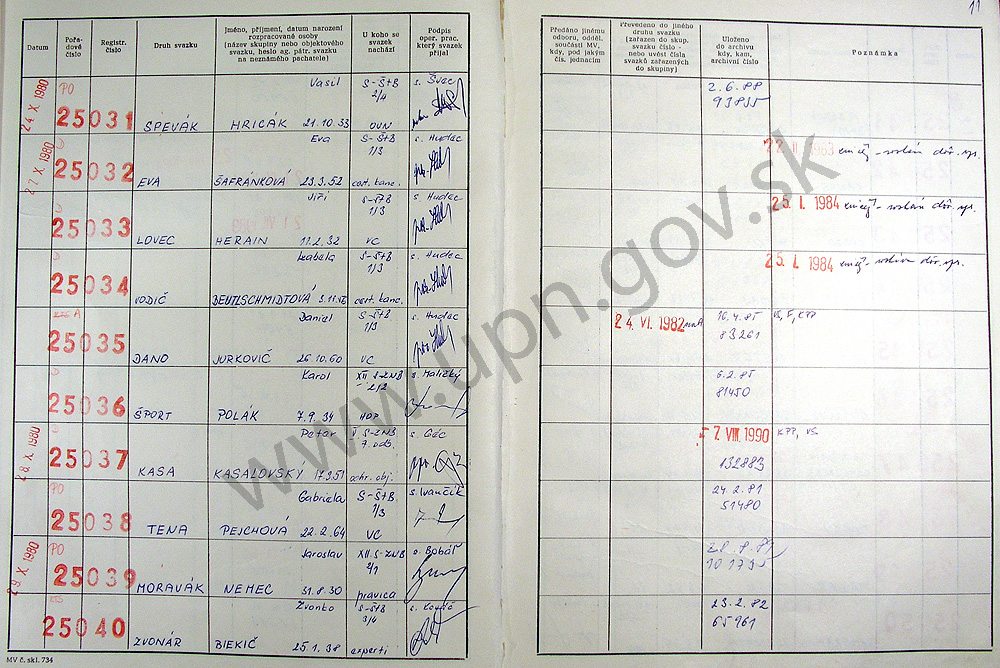 11
Datum
Pořa-
dové
číslo
Registr.
číslo
Druh svazku
Jméno, příjmení, datum narození
rozpracované osoby
(název skupiny nebo objektového
svazku, heslo ag. pátr. svazku
na neznámého pachatele)
U koho se
svazek
nachází
Podpis
oper. prac.
který svazek
přijal
Předáno jinému
odboru, odděl.
součásti MV,
kdy, pod jakým
čís. jednacím
Převedeno do jiného
druhu svazku
(zařazen do skup.
svazku číslo -
nebo uvést čísla
svazků zařazených
do skupiny)
Uloženo
do archivu
kdy, kam,
archivní číslo
Poznámka
24 X 1980 PO 25031 SPEVÁK Vasil HRICÁK 21.10.33 S-ŠtB 2/4 OUN s. Švec
2.6.88 93835
27 X 1980 D 25032 EVA Eva ŠAFRÁNKOVÁ 23.3.52 S-ŠtB 1/3 cest. kanc. s. Hudec
D 25033 LOVEC Jiří HERAIN 11.2.32 S-ŠtB 1/3 VC s. Hudec
25. I. 1984
D 25034 VODIČ Izabela DEUTLSCHMIDTOVÁ S-ŠtB 1/3 cest. kanc. s. Hudec
25. I. 1984
A 25035 DANO Daniel JURKOVIČ 26.10.60 S-ŠtB 1/3 VC s. Hudec
24. VI. 1982 16.4.85 83261 KPP
25036 ŠPORT Karol POLÁK 7.9.34 XII S-ZNB 2/2 s. Maličký
6.2.85 81450
28. X. 1980 25037 KASA Peter KASALOVSKÝ 17.3.51 S-ZNB 7. odb. ochr. obj. s. Géc
7. VIII. 1990 132883 KPP, VS
PO 25038 TENA Gabriela PEJCHOVÁ 22.2.64 S-ŠtB 1/3 VC s. Ivančík
24.2.81 51480
29. X. 1980 PO 25039 MORAVÁK Jaroslav NEMEC 31.8.30 XII. S-ZNB 2/1 pravica s. Bobáľ
25040 ZVONÁR Zvonko BIEKIČ 25.1.38 S-ŠtB 3/4 experti
23.2.82 65961
MV č. skl. 734
www.upn.gov.sk